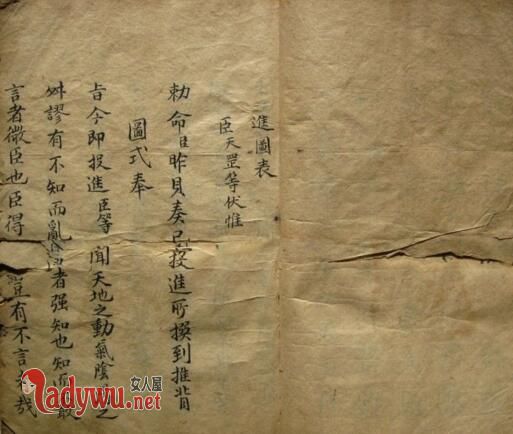 進圖表
臣天罡等伏惟
勅命臣昨具奏已投進所撰到推背
圖式奉
旨今即投進臣等聞天地之動氣陰之
舛謬有不知而亂者强知也知而
言者微臣也臣得豈有不言哉
女人屋
ladywu.net